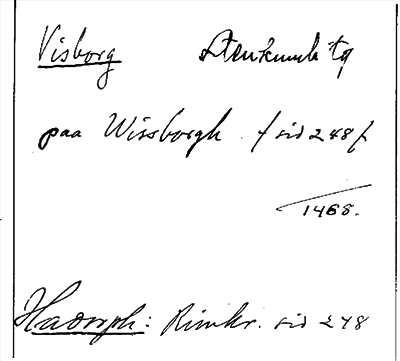 Visborg Stenkumla tg
paa Wissborgh. / sid 248 /
1468.
Hadorph: Rimkr. sid 248